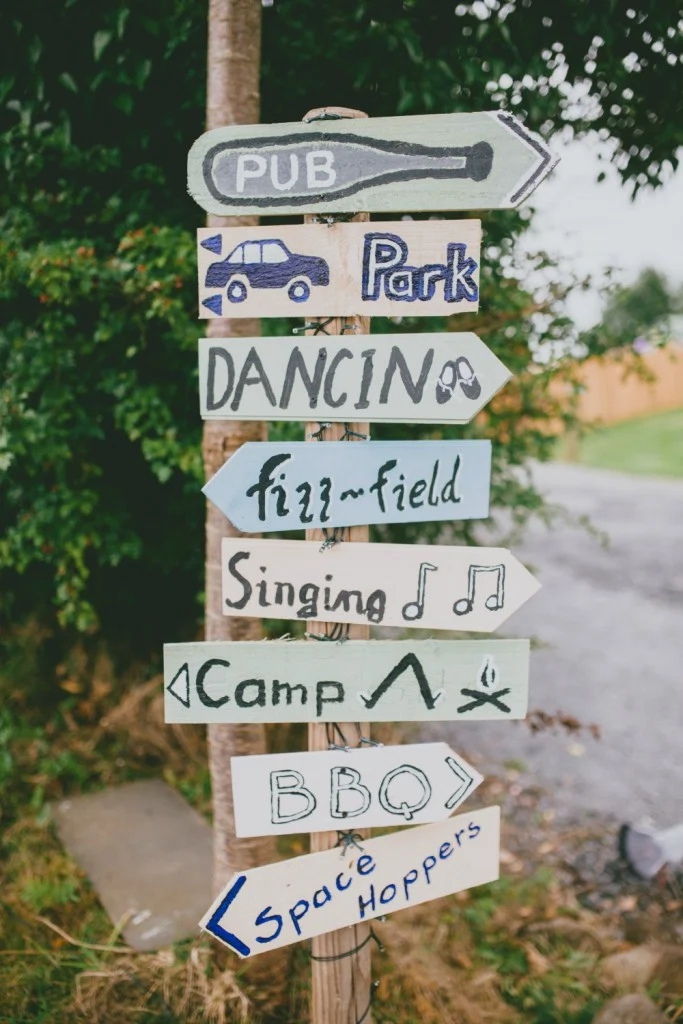 PUB
Park
DANCIN
fizz~field
Singing
Camp
BBQ
Space
Hoppers